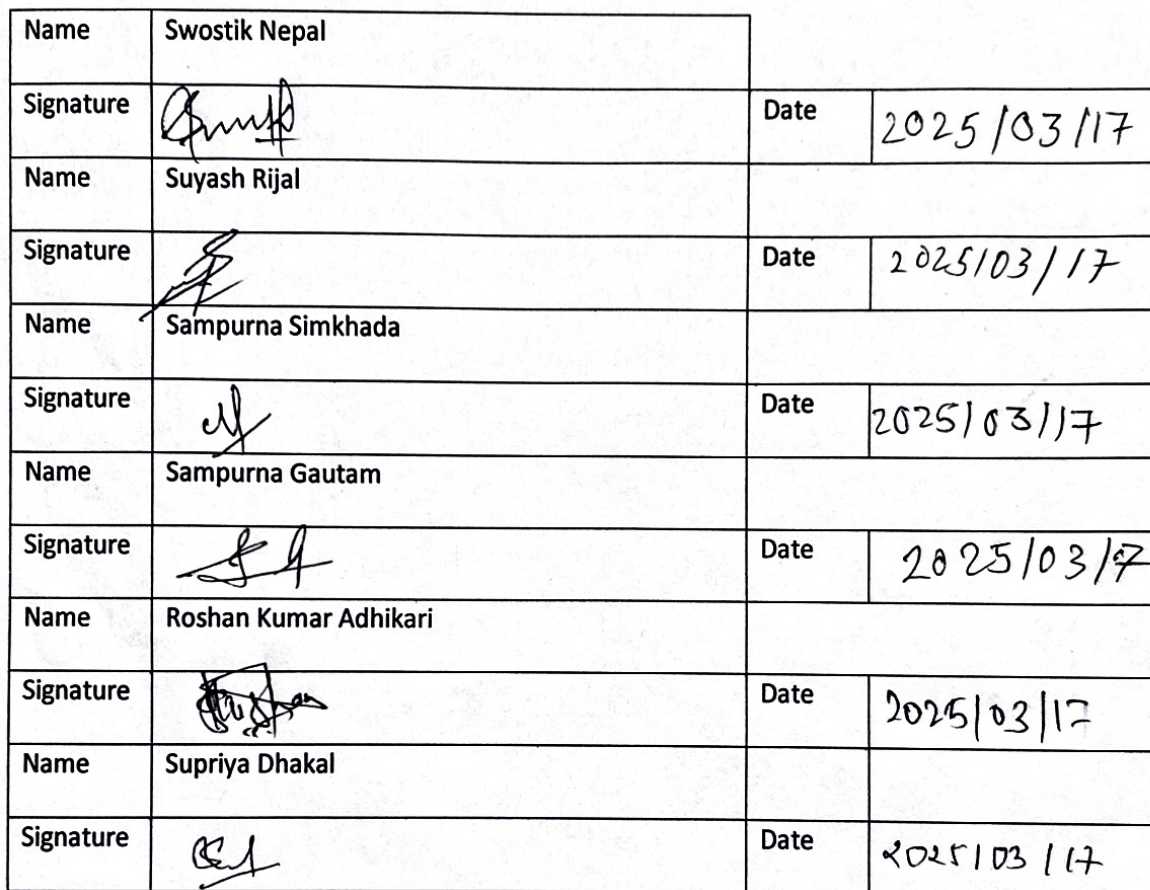 Name Swostik Nepal
Signature Date 2025/03/17
Name Suyash Rijal
Signature Date 2025/03/17
Name Sampurna Simkhada
Signature Date 2025/03/17
Name Sampurna Gautam
Signature Date 2025/03/17
Name Roshan Kumar Adhikari
Signature Date 2025/03/17
Name Supriya Dhakal
Signature Date 2025/03/17